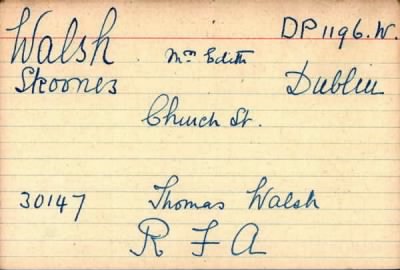 Walsh Mrs Edith DP1196.W.
Skoones Dublin
Church St.
30147 Thomas Walsh
R F A